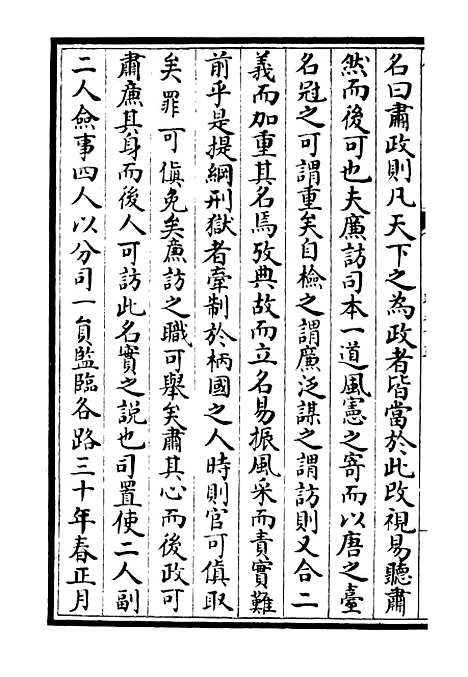 名曰肅政則凡天下之為政者皆當於此改視易聽肅
然而後可也夫廉訪司本一道風憲之寄而以唐之臺
名冠之可謂重矣自檢之謂廉泛謀之謂訪則又合二
義而加重其名焉攷典故而立名易振風采而責實難
前乎是提綱刑獄者牽制於柄國之人時則官可傎取
矣罪可傎免矣廉訪之職可舉矣肅其心而後政可
肅廉其身而後人可訪此名實之說也司置使二人副
二人僉事四人以分司一員監臨各路三十年春正月